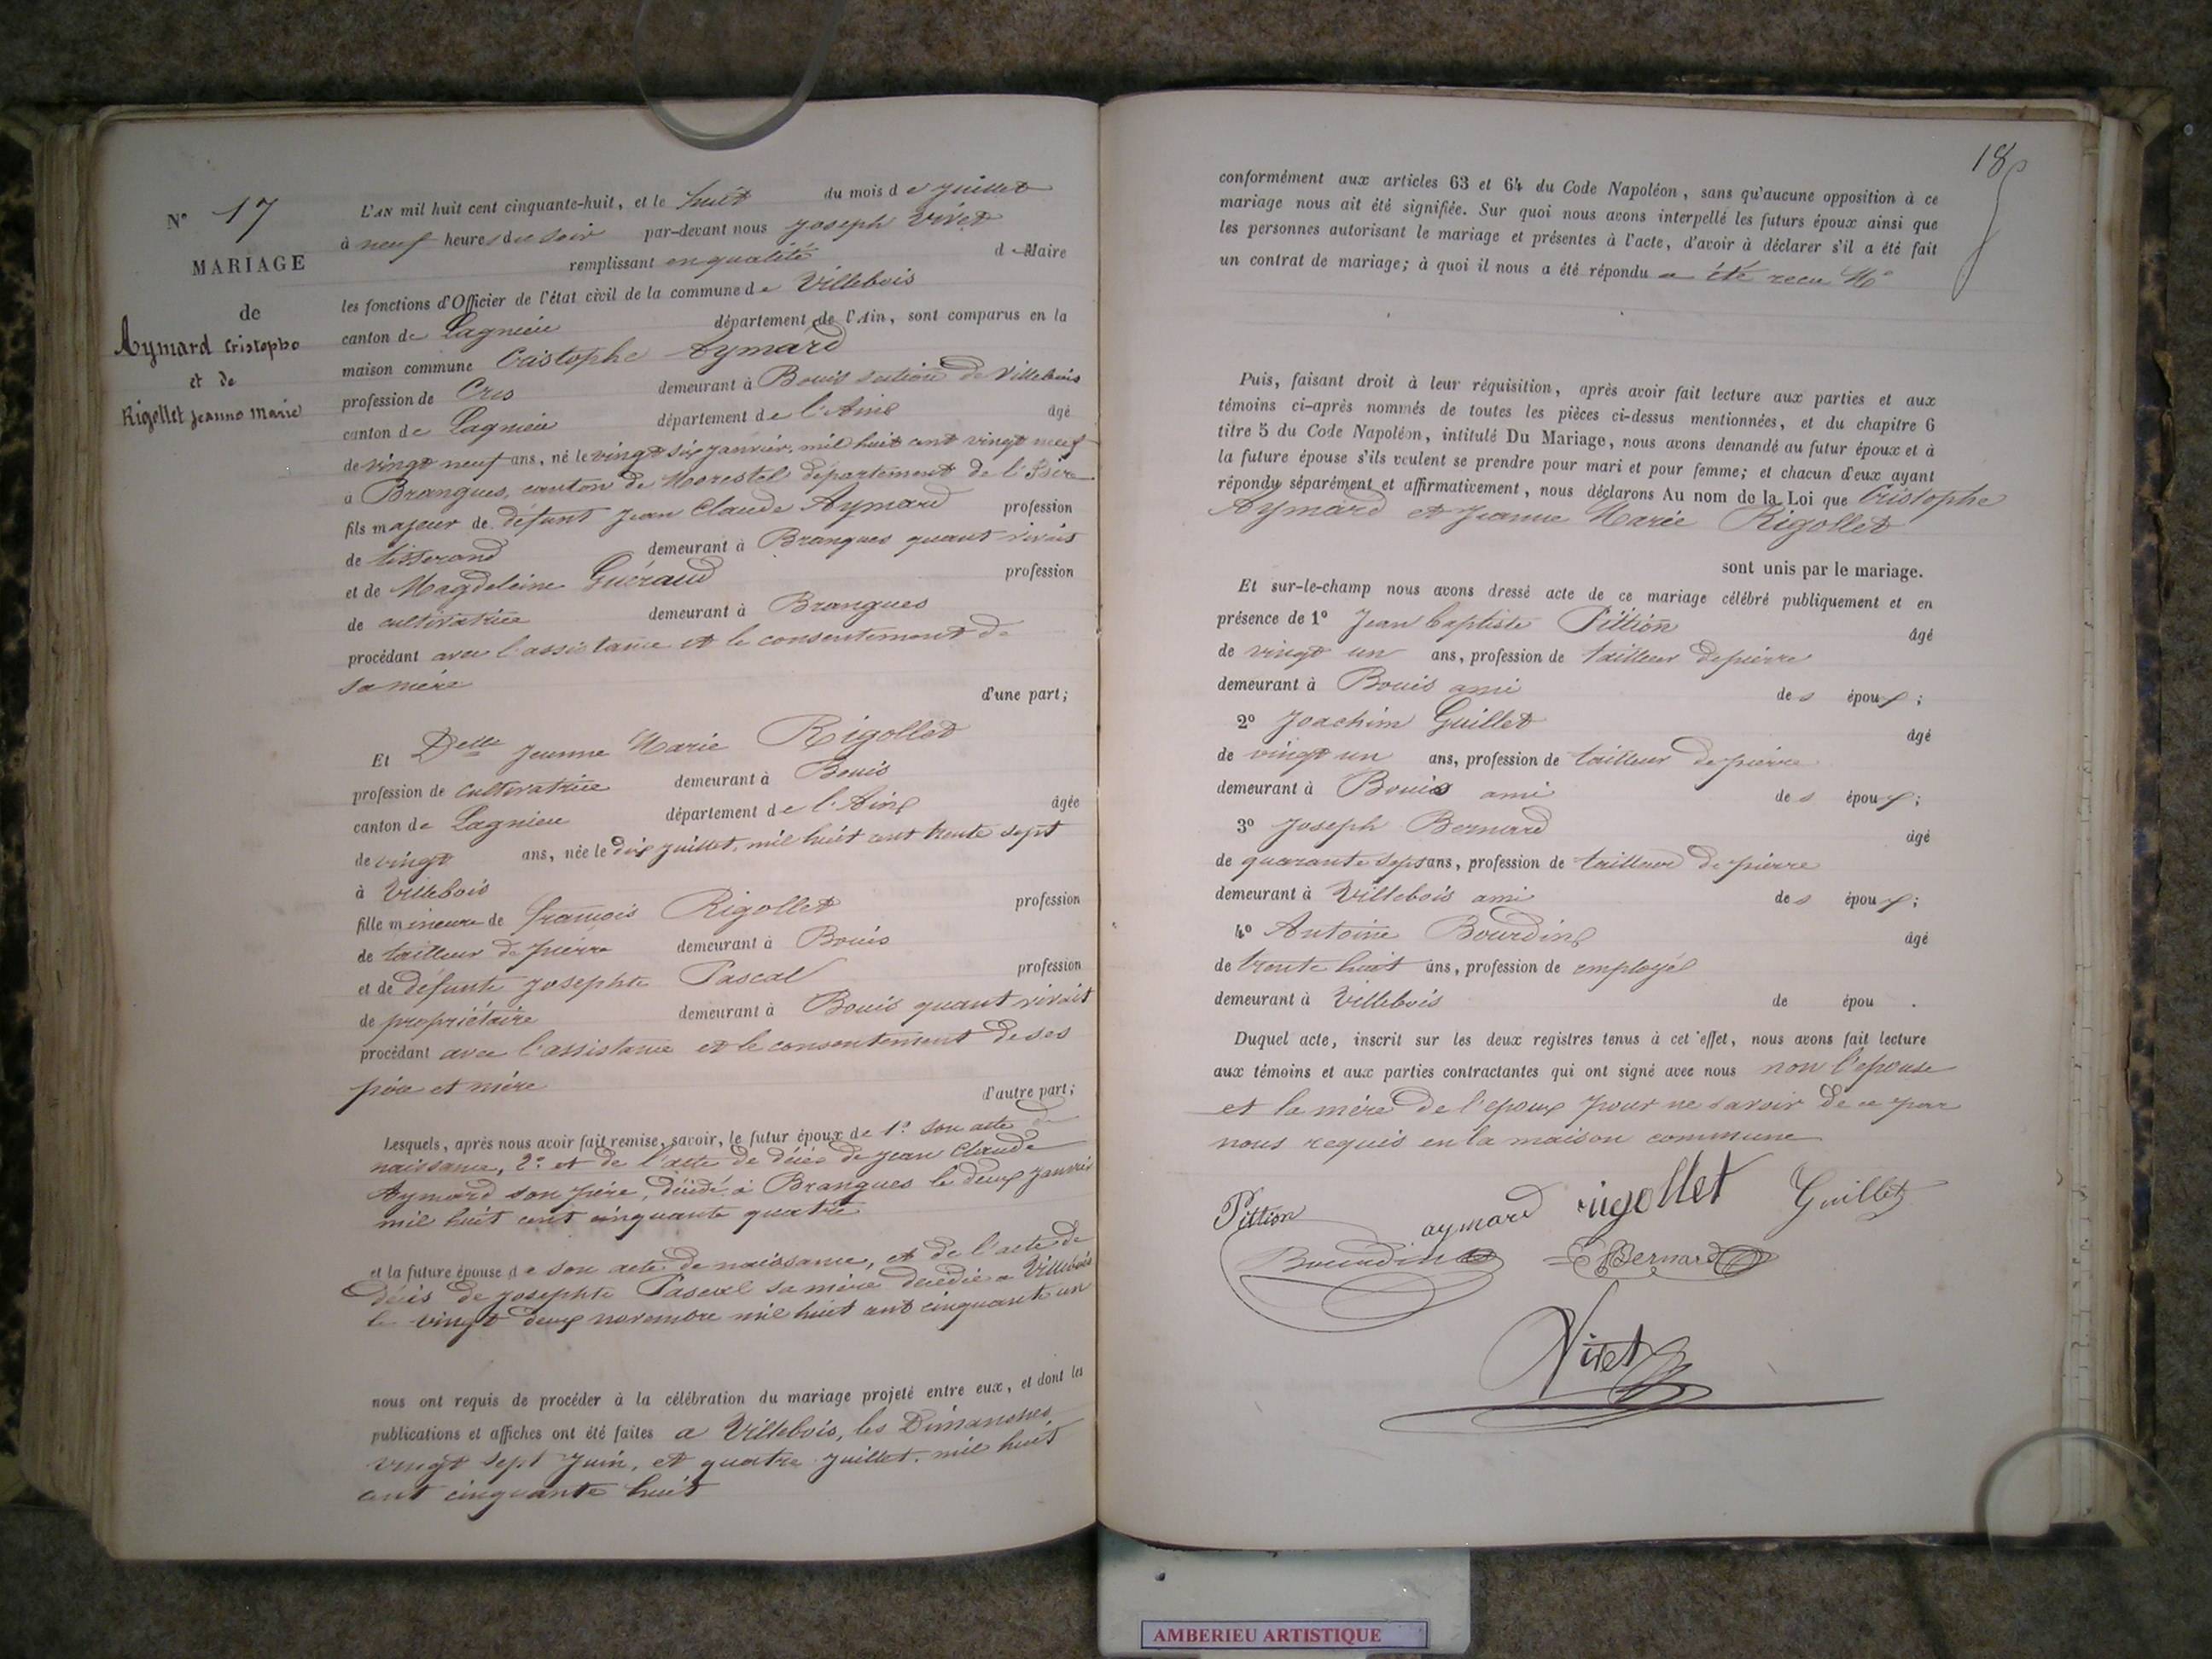 N° 17
MARIAGE
de
Aymard Cristophe
et de
Rigollet Jeanne Marie
L'AN mil huit cent cinquante-huit, et le huit du mois de Juillet
à neuf heures du soir par-devant nous Joseph Vivet
remplissant en qualité d Maire
les fonctions d'Officier de l'état civil de la commune de Villebois
canton de Lagnieu département de l'Ain, sont comparus en la
maison commune Cristophe Aymard
profession de demeurant à Bouis section de Villebois
canton de Lagnieu département de l'Ain âgé
de vingt neuf ans, né le vingt six janvier, mil huit cent vingt neuf
à Brangues, canton de Morestel département de l'Isère
fils majeur de défunt Jean Claude Aymard profession
de tisserand demeurant à Brangues quant vivait
et de Magdeleine Guéraud profession
de cultivatrice demeurant à Brangues
procédant avec l'assistance et le consentement de
sa mère d'une part;
Et Delle Jeanne Marie Rigollet
profession de cultivatrice demeurant à Bouis
canton de Lagnieu département de l'Ain âgée
de vingt ans, née le dix juillet, mil huit cent trente sept
à Villebois
fille mineure de françois Rigollet profession
de tailleur de pierre demeurant à Bouis
et de défunte Josephte Pascal profession
de propriétaire demeurant à Bouis quant vivait
procédant avec l'assistance et le consentement de ses
père et mère d'autre part;
Lesquels, après nous avoir fait remise, savoir, le futur époux de 1° son acte de
naissance, 2° et de l'acte de décès de Jean Claude
Aymard son père, décédé à Brangues le deux janvier
mil huit cent cinquante quatre
et la future épouse de son acte de naissance, et de l'acte de
décès de Josephte Pascal sa mère décédée a Villebois
le vingt deux novembre mil huit cent cinquante un
nous ont requis de procéder à la célébration du mariage projeté entre eux, et dont les
publications et affiches ont été faites a Villebois, les Dimanches
vingt sept Juin, et quatre Juillet, mil huit
cent cinquante huit
18
conformément aux articles 63 et 64 du Code Napoléon, sans qu'aucune opposition à ce
mariage nous ait été signifiée. Sur quoi nous avons interpellé les futurs époux ainsi que
les personnes autorisant le mariage et présentes à l'acte, d'avoir à déclarer s'il a été fait
un contrat de mariage; à quoi il nous a été répondu a été recu Me
Puis, faisant droit à leur réquisition, après avoir fait lecture aux parties et aux
témoins ci-après nommés de toutes les pièces ci-dessus mentionnées, et du chapitre 6
titre 5 du Code Napoléon, intitulé Du Mariage, nous avons demandé au futur époux et à
la future épouse s'ils veulent se prendre pour mari et pour femme; et chacun d'eux ayant
répondu séparément et affirmativement, nous déclarons Au nom de la Loi que Cristophe
Aymard et Jeanne Marie Rigollet
sont unis par le mariage.
Et sur-le-champ nous avons dressé acte de ce mariage célébré publiquement et en
présence de 1° Jean baptiste Pittion âgé
de vingt un ans, profession de tailleur de pierre
demeurant à Bouis ami des époux;
2° Joachim Guillet âgé
de vingt un ans, profession de tailleur de pierre
demeurant à Bouis ami des époux;
3° Joseph Bernard âgé
de quarante sept ans, profession de tailleur de pierre
demeurant à Villebois ami des époux;
4° Antoine Bourdin âgé
de trente huit ans, profession de employé
demeurant à Villebois de épou .
Duquel acte, inscrit sur les deux registres tenus à cet effet, nous avons fait lecture
aux témoins et aux parties contractantes qui ont signé avec nous non l'épouse
et la mère de l'époux pour ne savoir de ce par
nous requis en la maison commune
Pittion aymard rigollet Guillet
Bourdin Bernard
Vivet
AMBERIEU ARTISTIQUE